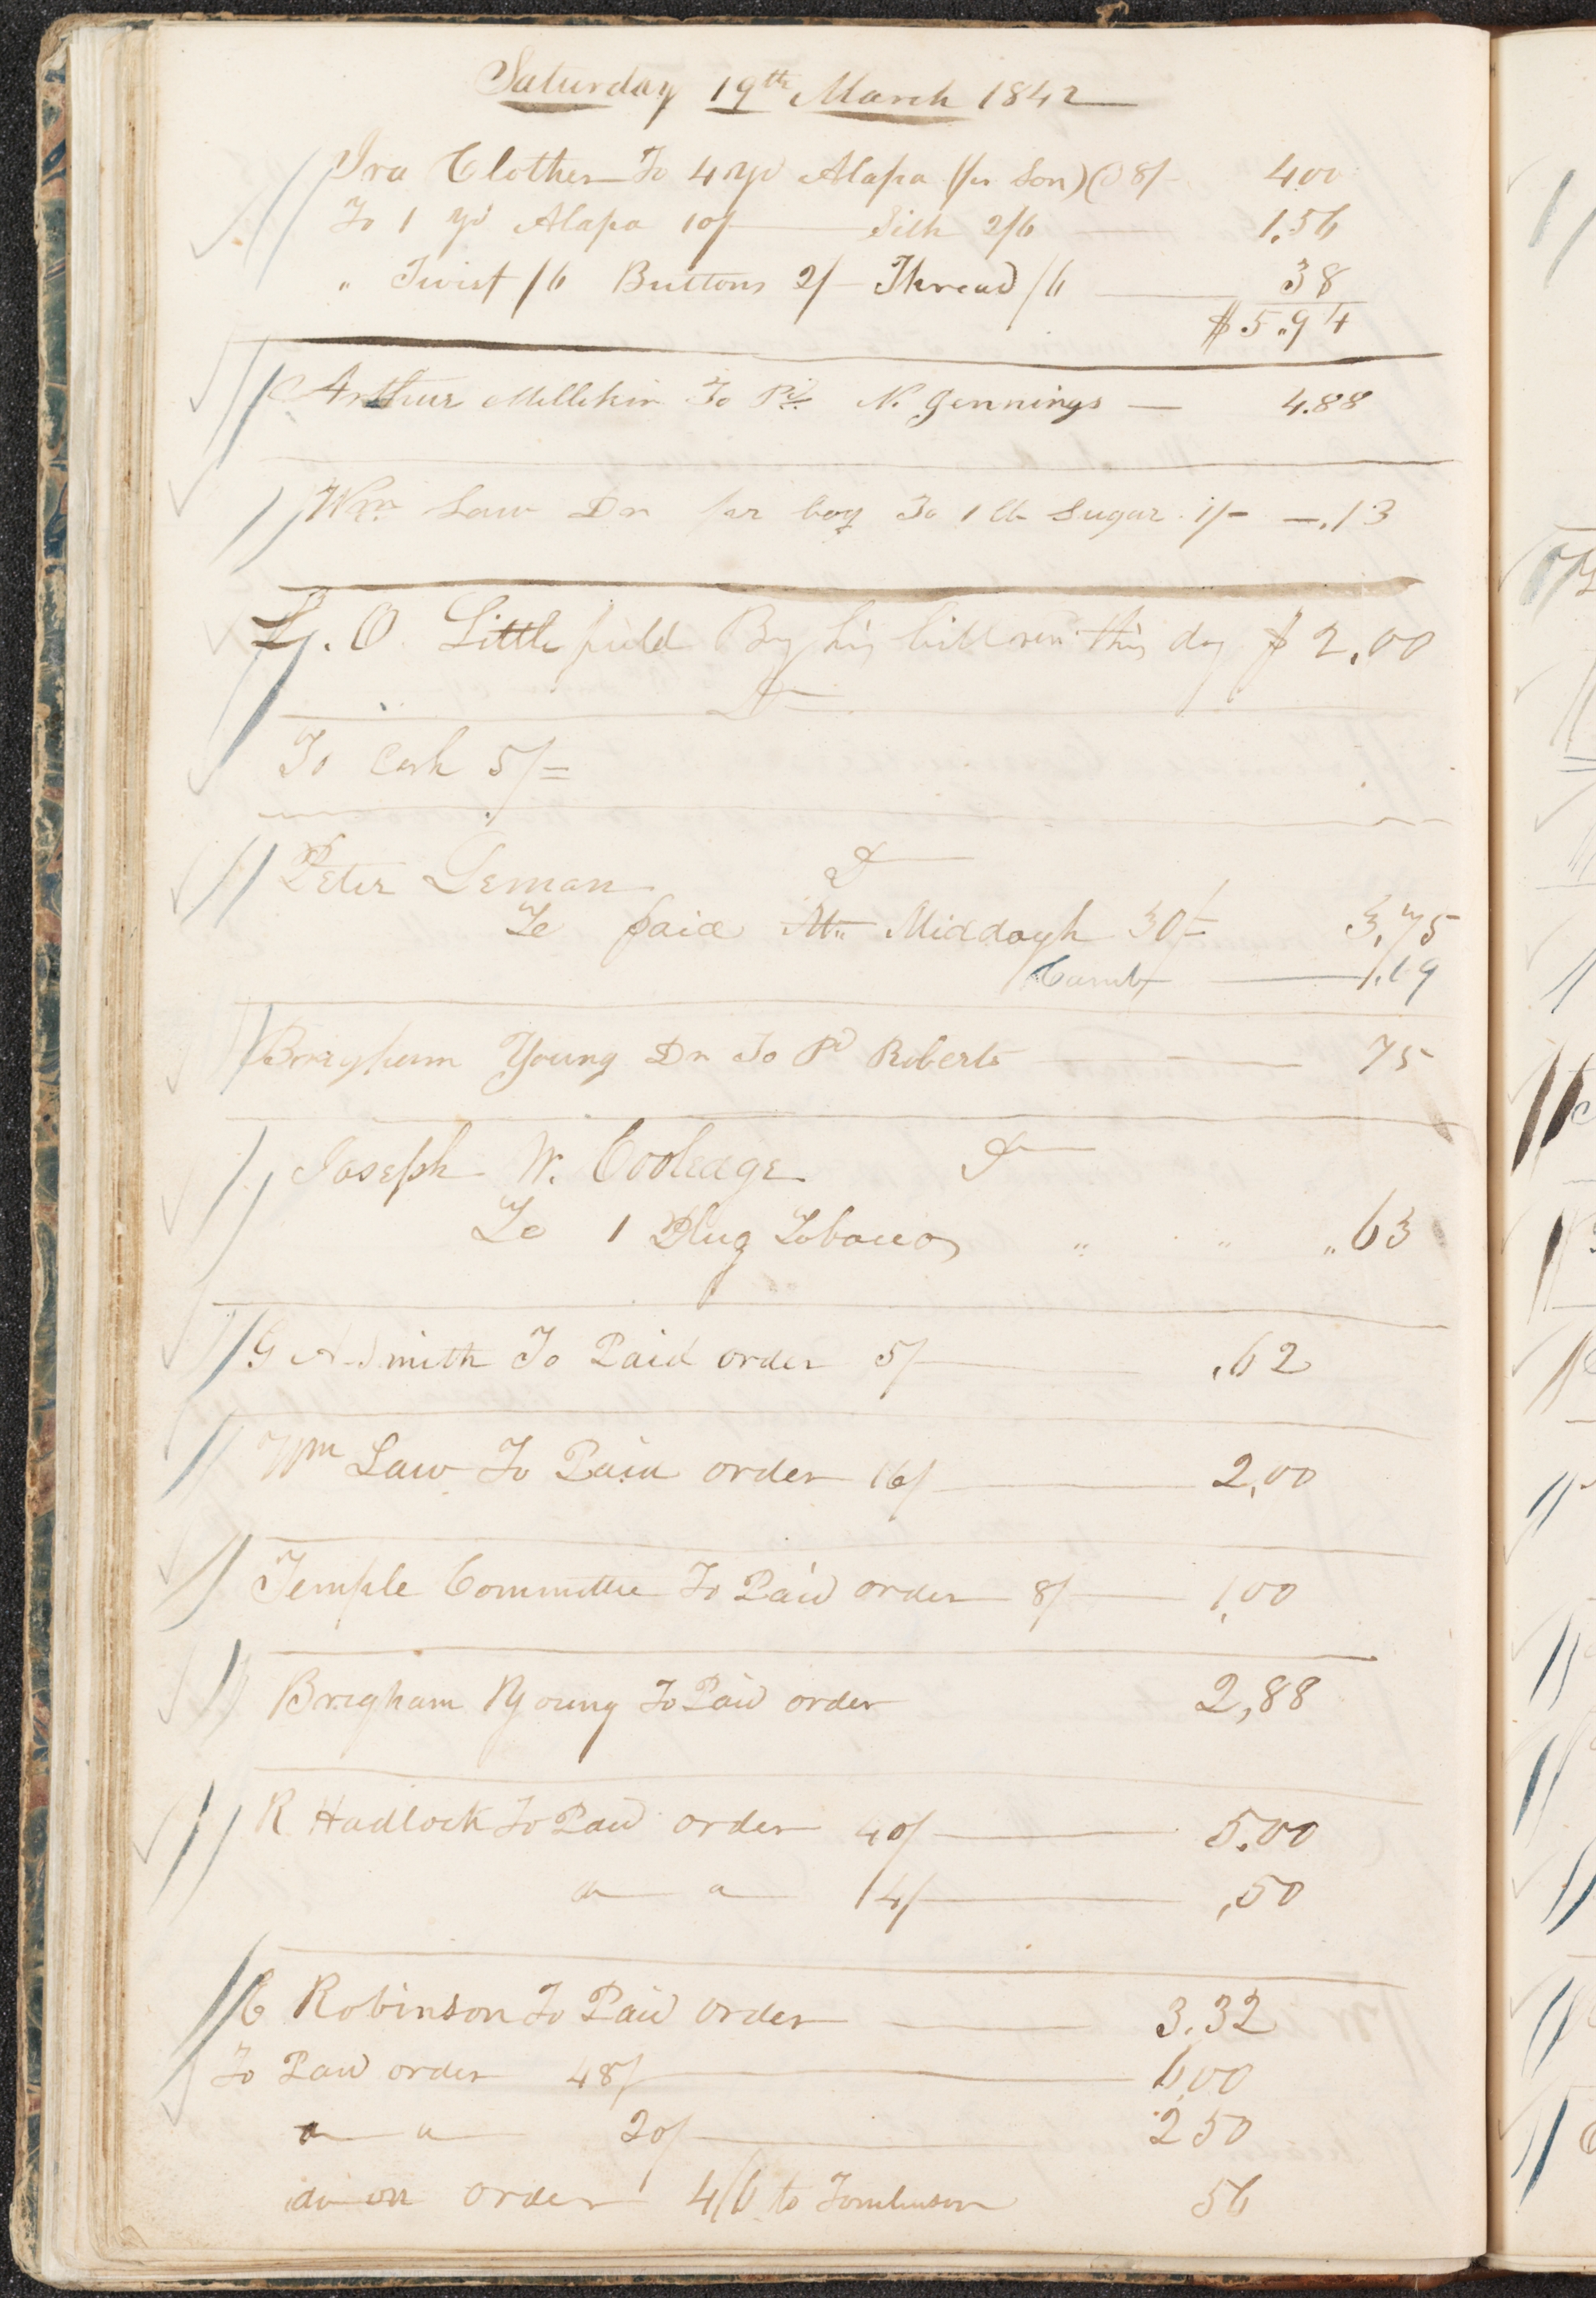 Saturday 19th March 1842
Ira Clothier To 4 Yd Alapa (per Son) @ 8/ 4.00
To 1 yd Alapa 10/ Silk 2/6 1.56
" Twist /6 Buttons 2/ Thread /6 38
$5.94
Arthur Millikin To Pd. N. Jennings 4.88
Wm. Law Dr per boy To 1 lb Sugar 1/- .13
L. O Littlefield By his this day $2.00
Dr
To Cash 5/=
Peter Leman Dr
To paid Middagh 30/= 3.75
1.19
Brigham Young Dr To Pd Roberts 75
Joseph W. Cooledge Dr
To 1 Plug Tobacco " " " 63
G A Smith To Paid order 5/ .62
Wm Law To Paid order 16/ 2,00
Temple Committee To Paid order 8/ 1,00
Brigham Young To Paid order 2,88
R Hadlock To Paid order 40/ 5.00
" " 4/ ,50
E Robinson To Paid order 3.32
To Paid order 48/ 6,00
" " 20/ 2 50
do on order 4/6 to Tomlinson 56